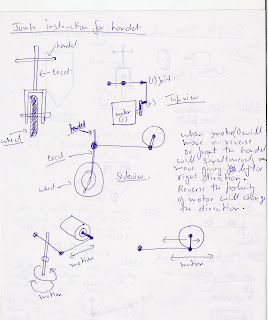 Joints instruction for handel.
handel
ereed
wheel
(1) joint
(2)
motor
(1)
Top view
handel
ereed
wheel
Sideview
when motor(1) will
move in reverse
or front the handel
will simultaneously
move giving left or
right direction.
Reverse the polarity
of motor will change
the direction.
motion
motion
motion